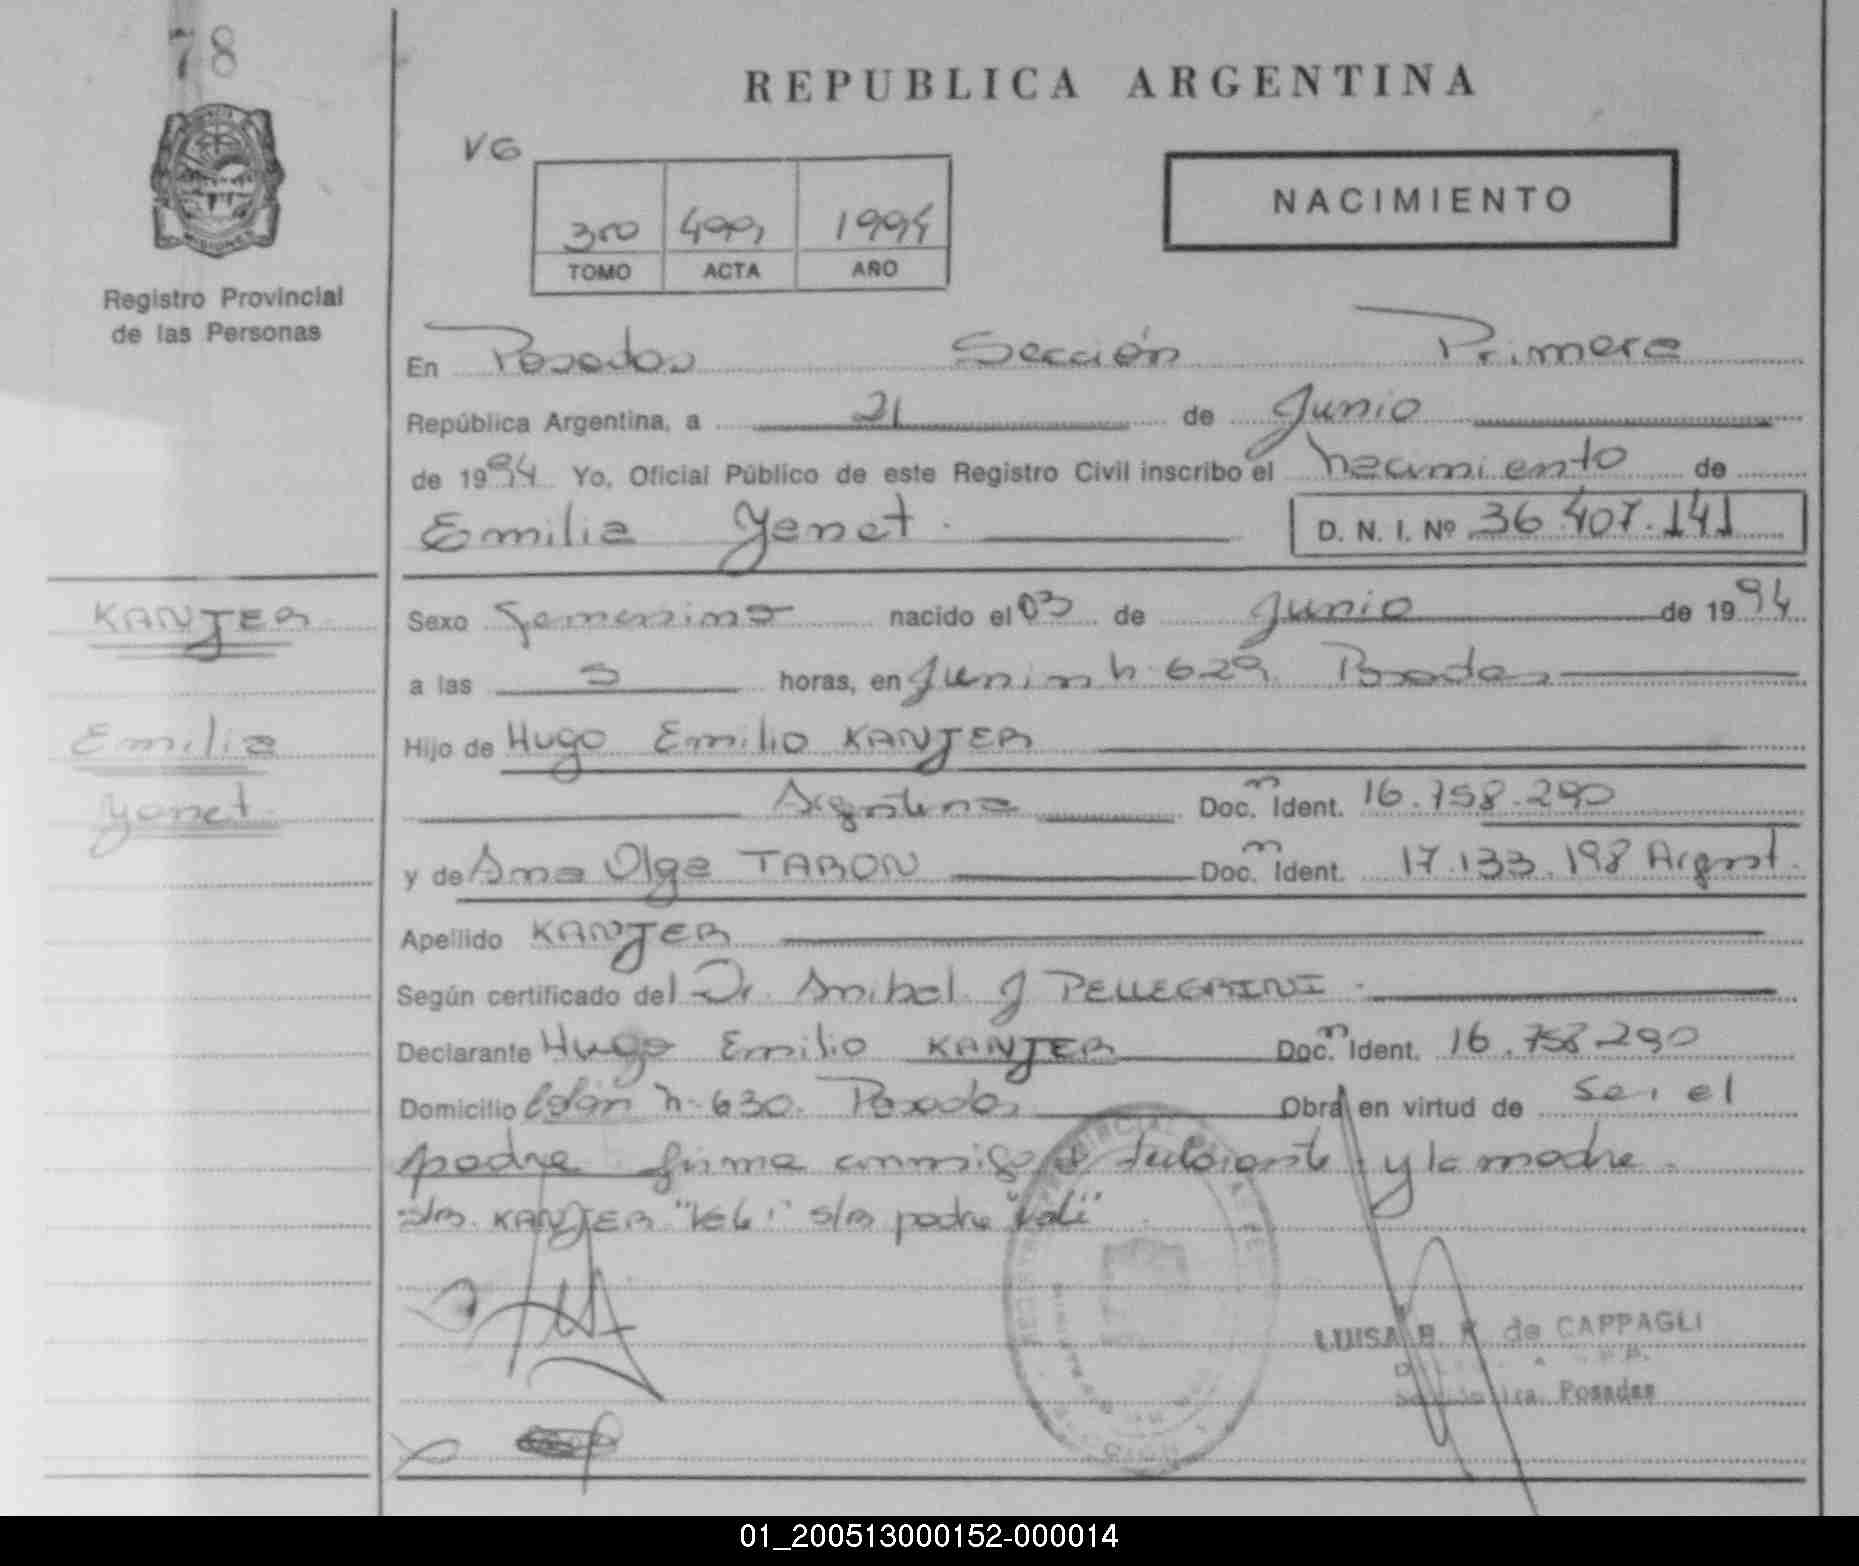 78
REPUBLICA ARGENTINA
VG
NACIMIENTO
300 499 1994
TOMO ACTA AÑO
MISIONES
Registro Provincial
de las Personas
En Posadas Sección Primera
República Argentina, a 21 de Junio
de 1994 Yo, Oficial Público de este Registro Civil inscribo el nacimiento de
Emilia Yanet. D. N. I. Nº 36.407.141
KANJER
Sexo femenino nacido el 03 de Junio de 1994
a las horas, en Junin n. 629 Posadas
Emilia
Hijo de Hugo Emilio KANJER
Yanet.
Argentina Doc. Ident. 16.758.290
y de Ana Olga TABON Doc. Ident. 17.133.198 Argent.
Apellido KANJER
Según certificado del Dr. Anibal J PELLEGRINI.
Declarante Hugo Emilio KANJER Doc. Ident. 16.758.290
Domicilio Colón n. 630. Posadas Obra en virtud de ser el
padre firma conmigo y la madre.
s/r. KANJER s/r padre
LUISA B. de CAPPAGLI
Posadas
01_200513000152-000014